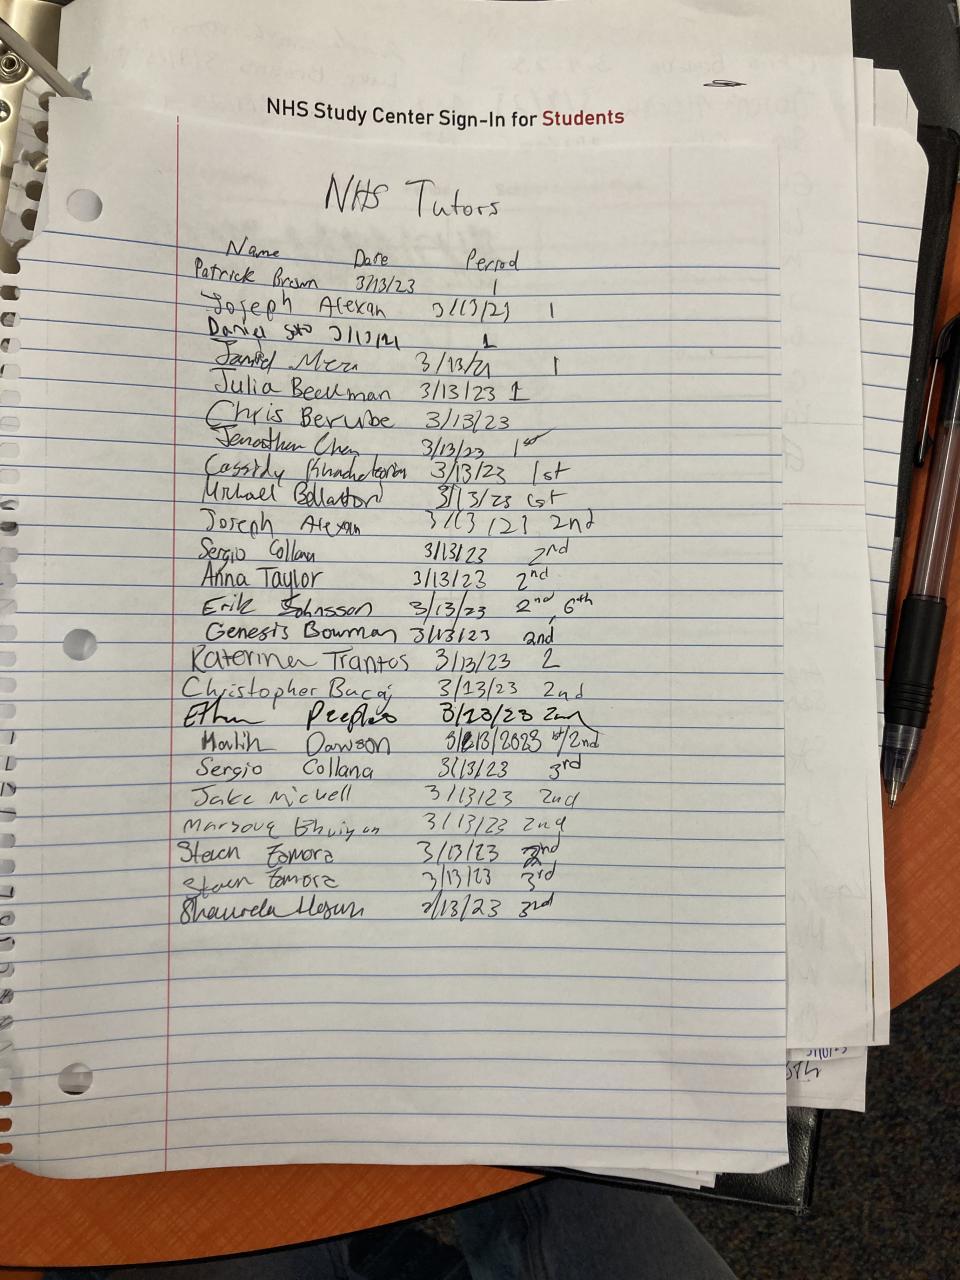 NHS Study Center Sign-In for Students
NHS Tutors
Name Date Period
Patrick Brown 3/13/23 1
Joseph Alexan 3/13/23 1
Daniel Soto 3/13/21 1
3/13/21 1
Julia Beckman 3/13/23 1
Chris Berube 3/13/23
Jonathan Chen 3/13/23 1st
Cassidy 3/13/23 1st
Michael 3/13/23 1st
Joseph Alexan 3/13/23 2nd
Sergio Collana 3/13/23 2nd
Anna Taylor 3/13/23 2nd
Erik Johnsson 3/13/23 2nd, 6th
Genesis Bowman 3/13/23 2nd
Katerina Trantos 3/13/23 2
Christopher Bacaj 3/13/23 2nd
Ethan Peeples 3/13/23 2nd
Dawson 3/13/2023 1st/2nd
Sergio Collana 3/13/23 3rd
Jake Mickell 3/13/23 2nd
Bhuiyan 3/13/23 2nd
Zamora 3/13/23 2nd
Zamora 3/13/23 3rd
3/13/23 3rd